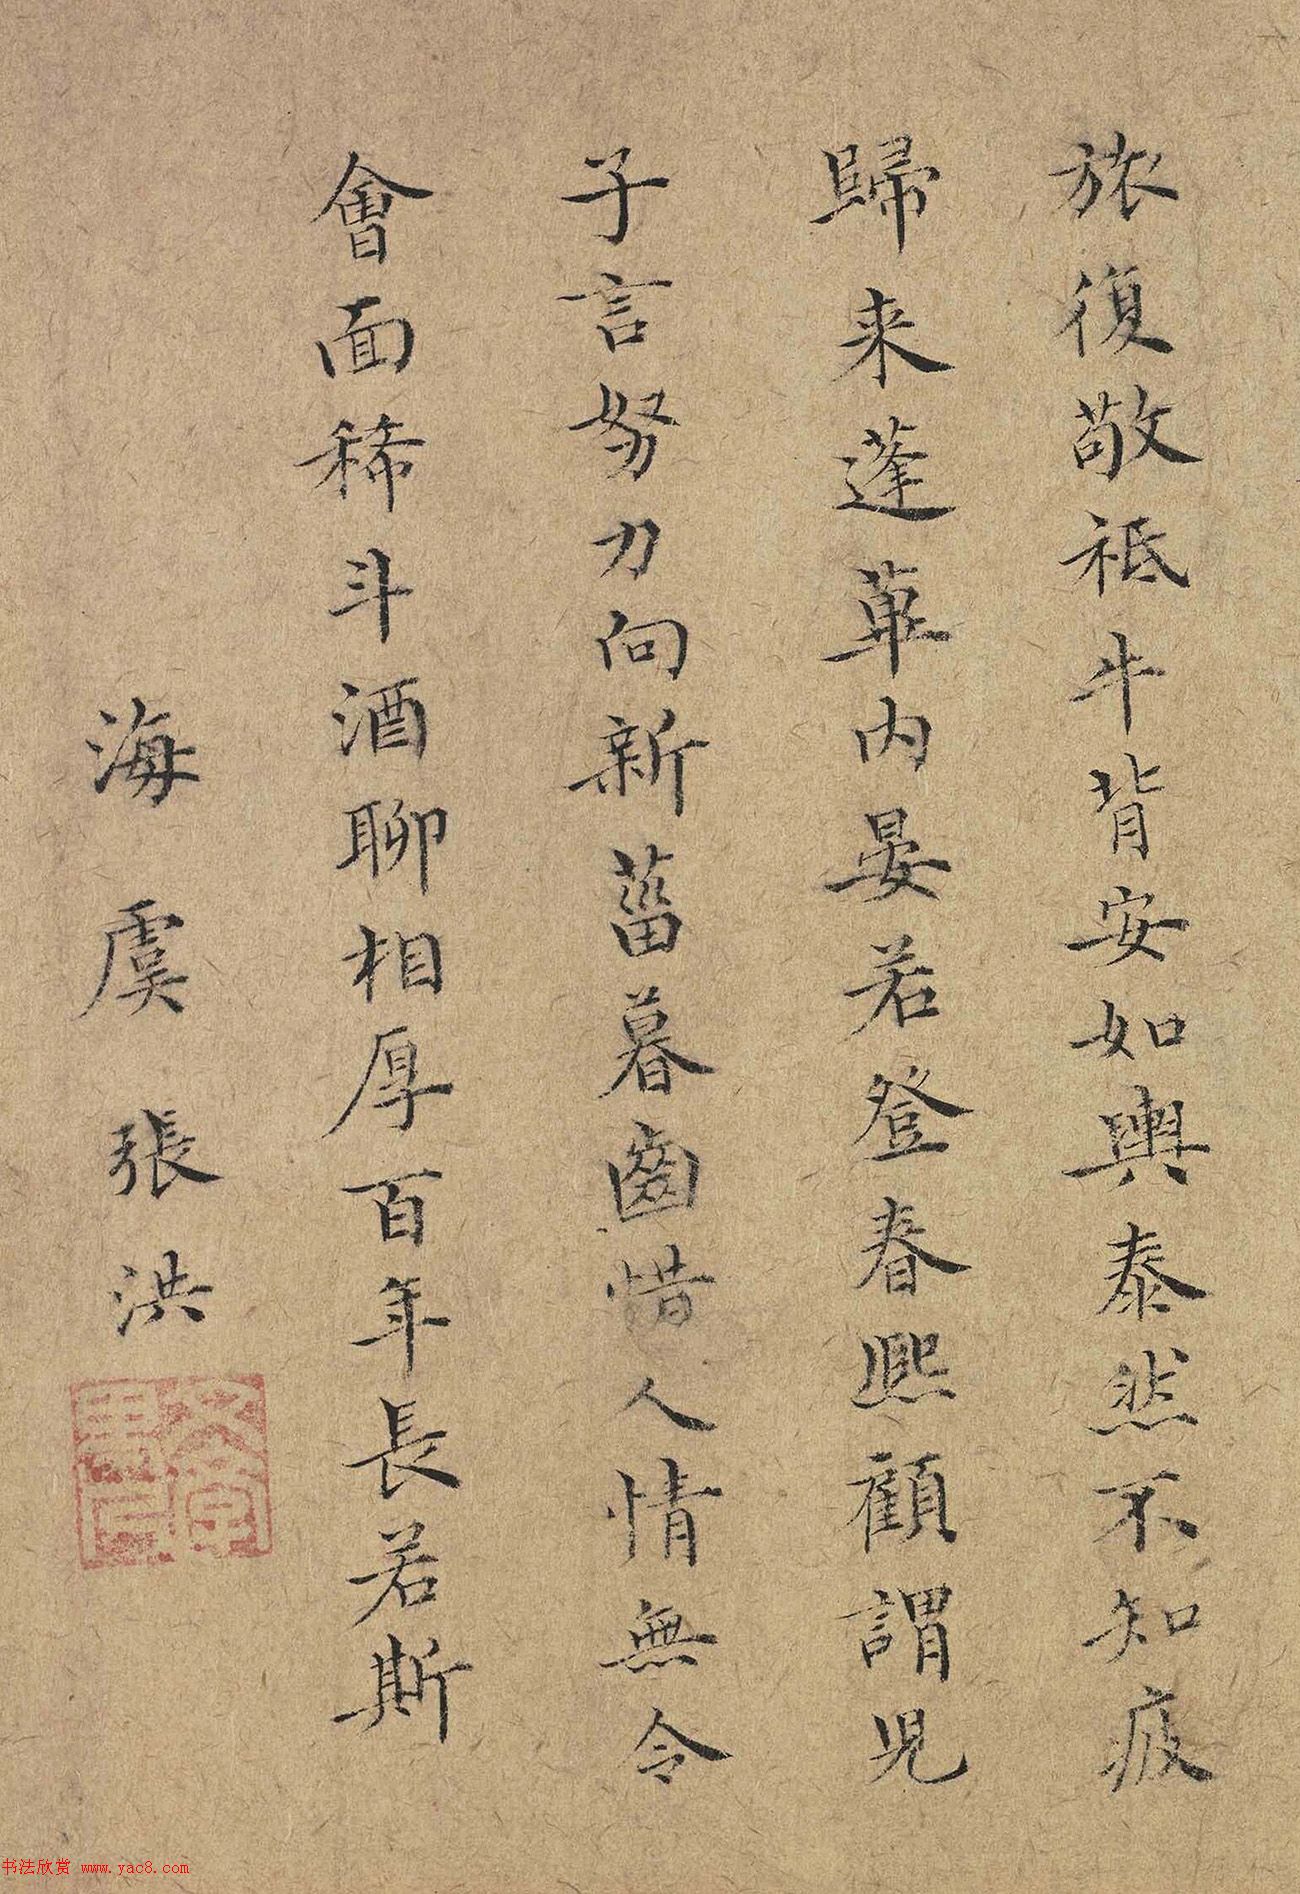 旅復敬祗牛背安如輿泰然不知疲
歸来蓬蓽内晏若登春熙顧謂児
子言努力向新菑暮齒惜人情無令
會面稀斗酒聊相厚百年長若斯
海虞張洪
书法欣赏 www.yac8.com